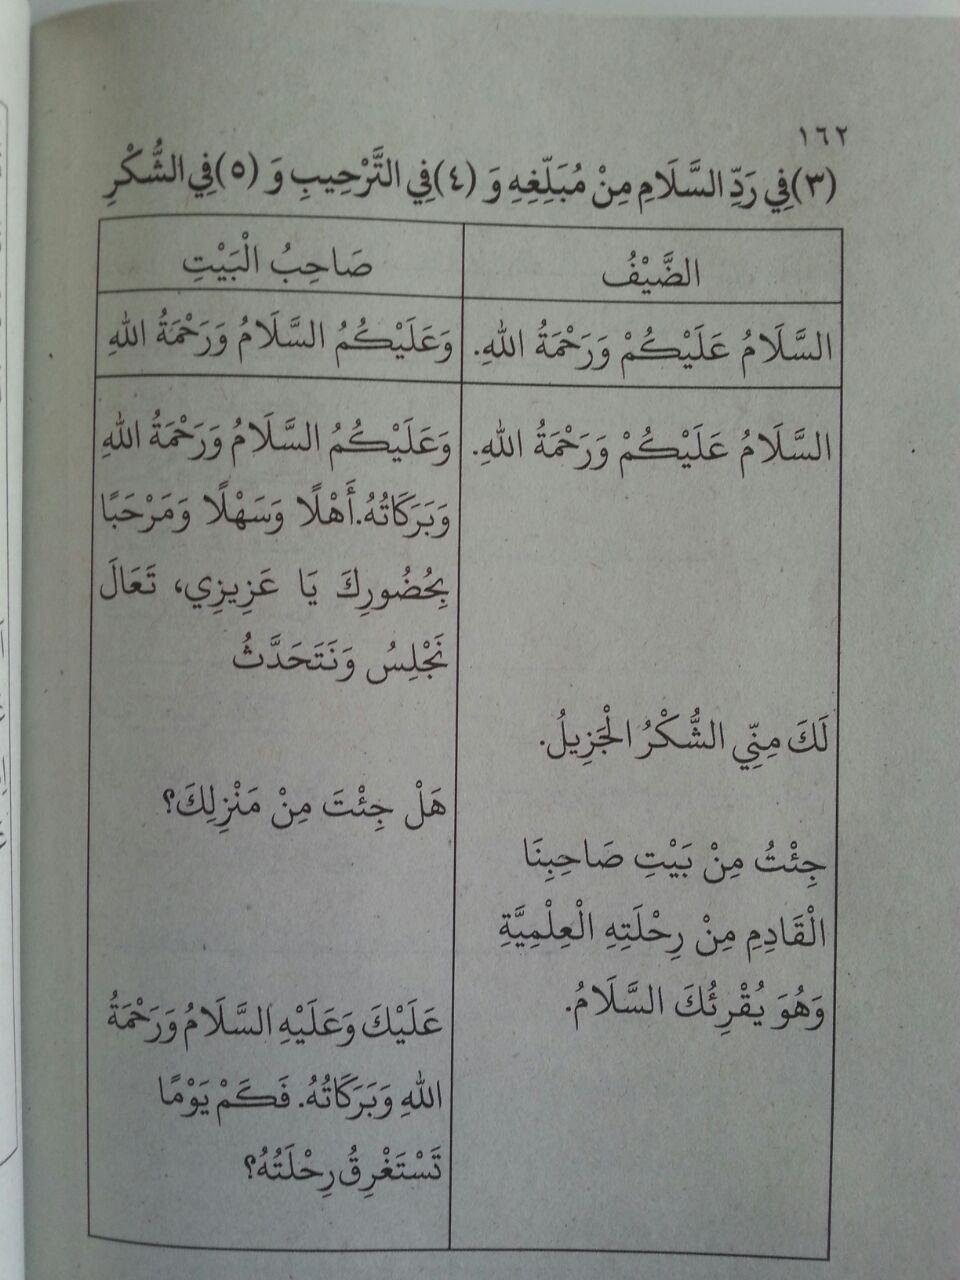 ١٦٢
(٣) فِي رَدِّ السَّلَامِ مِنْ مُبَلِّغِهِ وَ (٤) فِي التَّرْحِيبِ وَ (٥) فِي الشُّكْرِ
الضَّيْفُ
صَاحِبُ الْبَيْتِ
السَّلَامُ عَلَيْكُمْ وَرَحْمَةُ اللهِ.
وَعَلَيْكُمُ السَّلَامُ وَرَحْمَةُ اللهِ
السَّلَامُ عَلَيْكُمْ وَرَحْمَةُ اللهِ.
وَعَلَيْكُمُ السَّلَامُ وَرَحْمَةُ اللهِ
وَبَرَكَاتُهُ. أَهْلًا وَسَهْلًا وَمَرْحَبًا
بِحُضُورِكَ يَا عَزِيزِي، تَعَالَ
نَجْلِسُ وَنَتَحَدَّثُ
لَكَ مِنِّي الشُّكْرُ الْجَزِيلُ.
هَلْ جِئْتَ مِنْ مَنْزِلِكَ؟
جِئْتُ مِنْ بَيْتِ صَاحِبِنَا
الْقَادِمِ مِنْ رِحْلَتِهِ الْعِلْمِيَّةِ
وَهُوَ يُقْرِئُكَ السَّلَامُ.
عَلَيْكَ وَعَلَيْهِ السَّلَامُ وَرَحْمَةُ
اللهِ وَبَرَكَاتُهُ. فَكَمْ يَوْمًا
تَسْتَغْرِقُ رِحْلَتُهُ؟